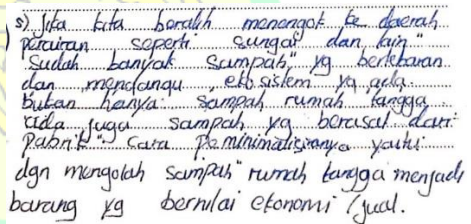 s) Jika kita beralih menengok ke daerah
perairan seperti sungai dan lain"
sudah banyak sampah" yg bertebaran
dan mengangu ekosistem yg ada.
bukan hanya sampah rumah tangga
ada juga sampah yg berasal dari
Pabrik" Cara Peminimalisiranya yaitu
dgn mengolah sampah" rumah tangga menjadi
barang yg bernilai ekonomi / jual.